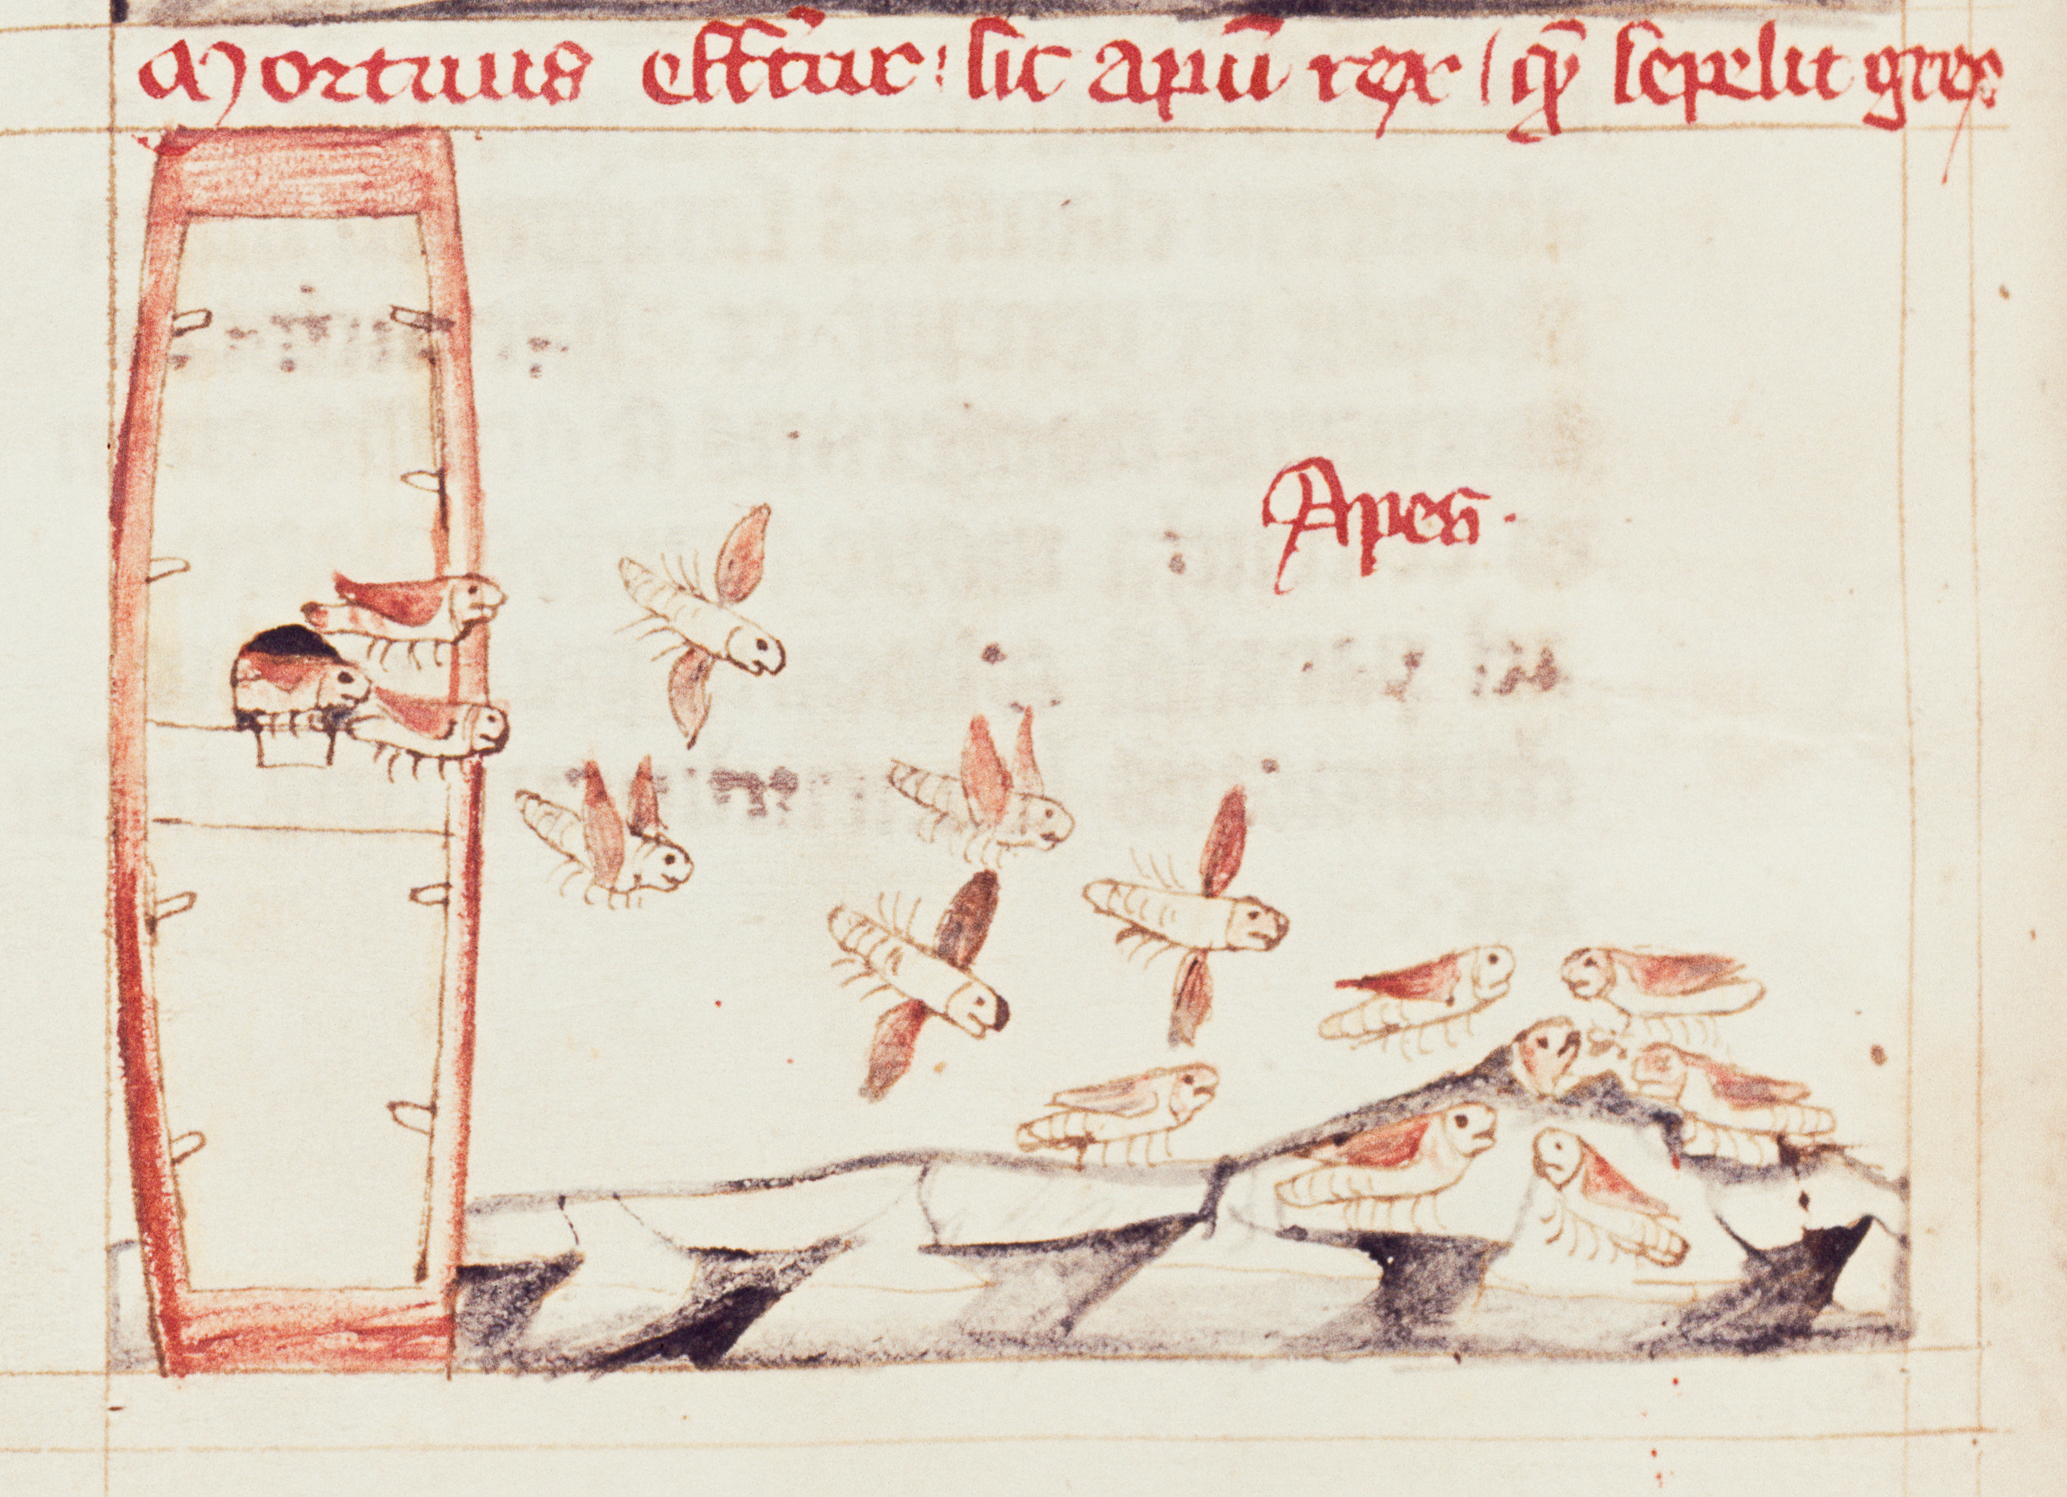 Mortuus effertur sic apū rex / q̄ sepelit grex
Apes.